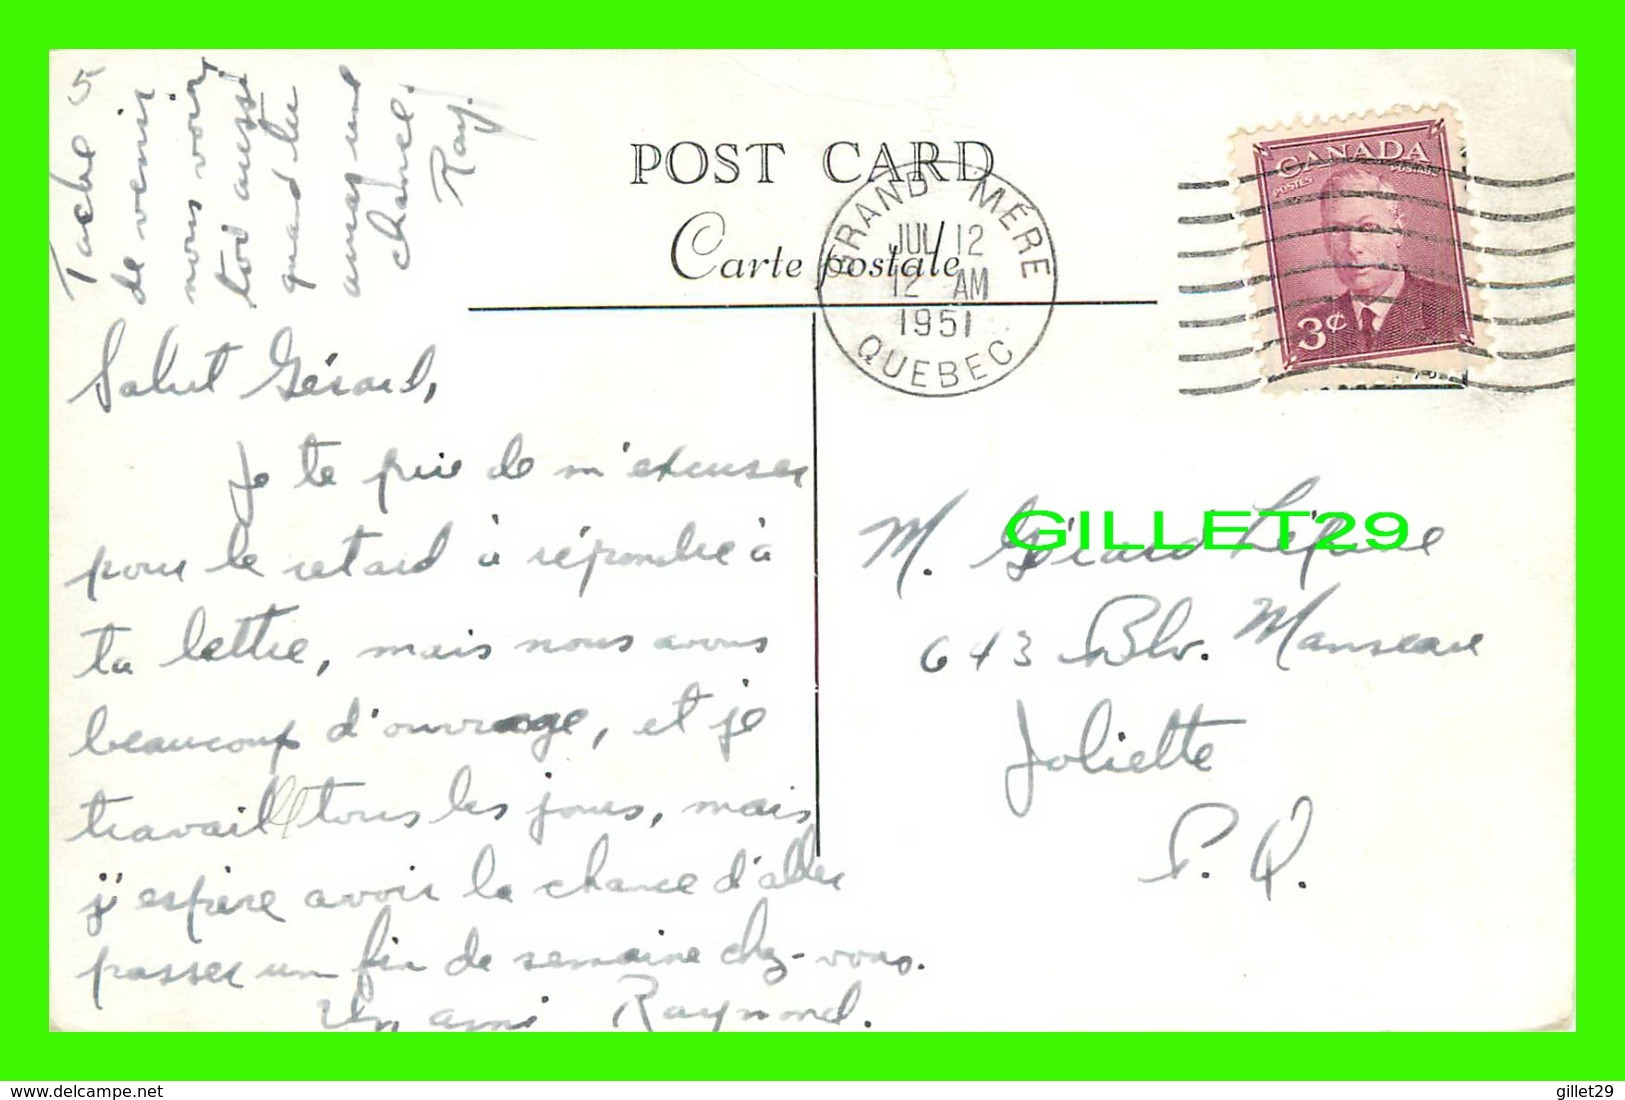 Tache 5
de venir
nous voir
toi aussi
quand tu
auras une
chance.
Ray.
POST CARD
Carte postale
GRAND MÈRE
JUL 12
12 AM
1951
QUEBEC
CANADA
POSTES POSTAGE
3¢
Salut Gérard,
Je te prie de m'excuser
pour le retard à répondre à
ta lettre, mais nous avons
beaucoup d'ouvrage, et je
travaille tous les jours, mais
j'espère avoir la chance d'aller
passer un fin de semaine chez-vous.
Un ami Raymond.
GILLET29
M. Gérard
643 Blv. Manseau
Joliette
P. Q.
delcampe.net
gillet29